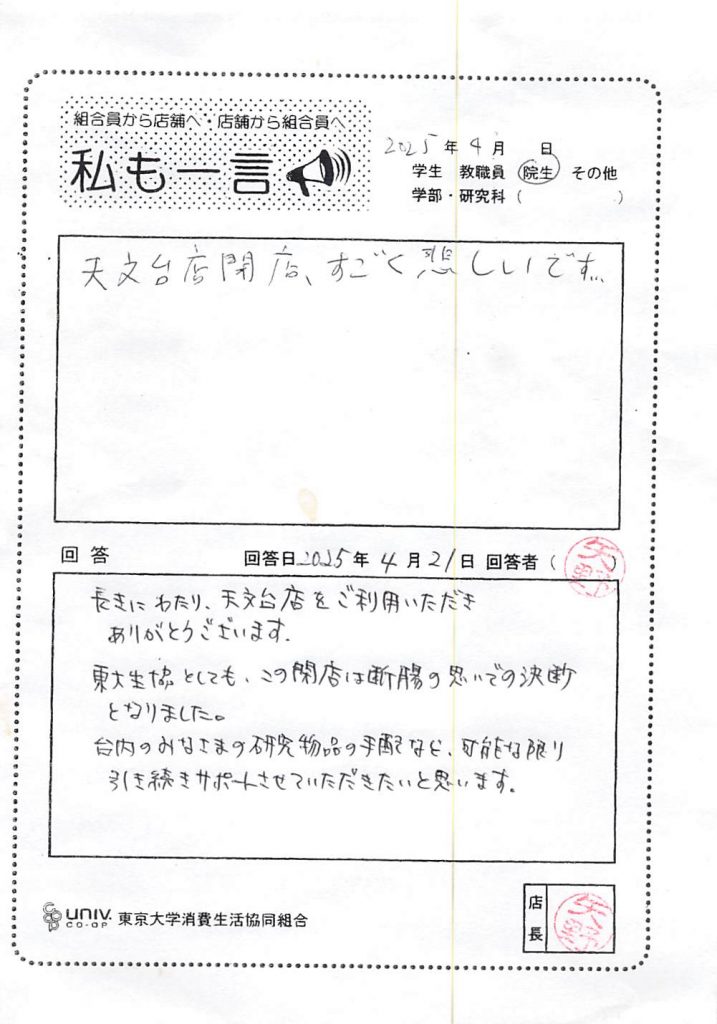 組合員から店舗へ・店舗から組合員へ
私も一言
2025年4月 日
学生 教職員 院生 その他
学部・研究科( )
天文台店閉店、すごく悲しいです...
回答 回答日2025年4月21日 回答者(矢野)
長きにわたり、天文台店をご利用いただき
ありがとうございます.
東大生協としても、この閉店は断腸の思いでの決断
となりました。
台内のみなさまの研究物品の手配など、可能な限り
引き続きサポートさせていただきたいと思います。
UNIV. CO-OP 東京大学消費生活協同組合
店長 矢野